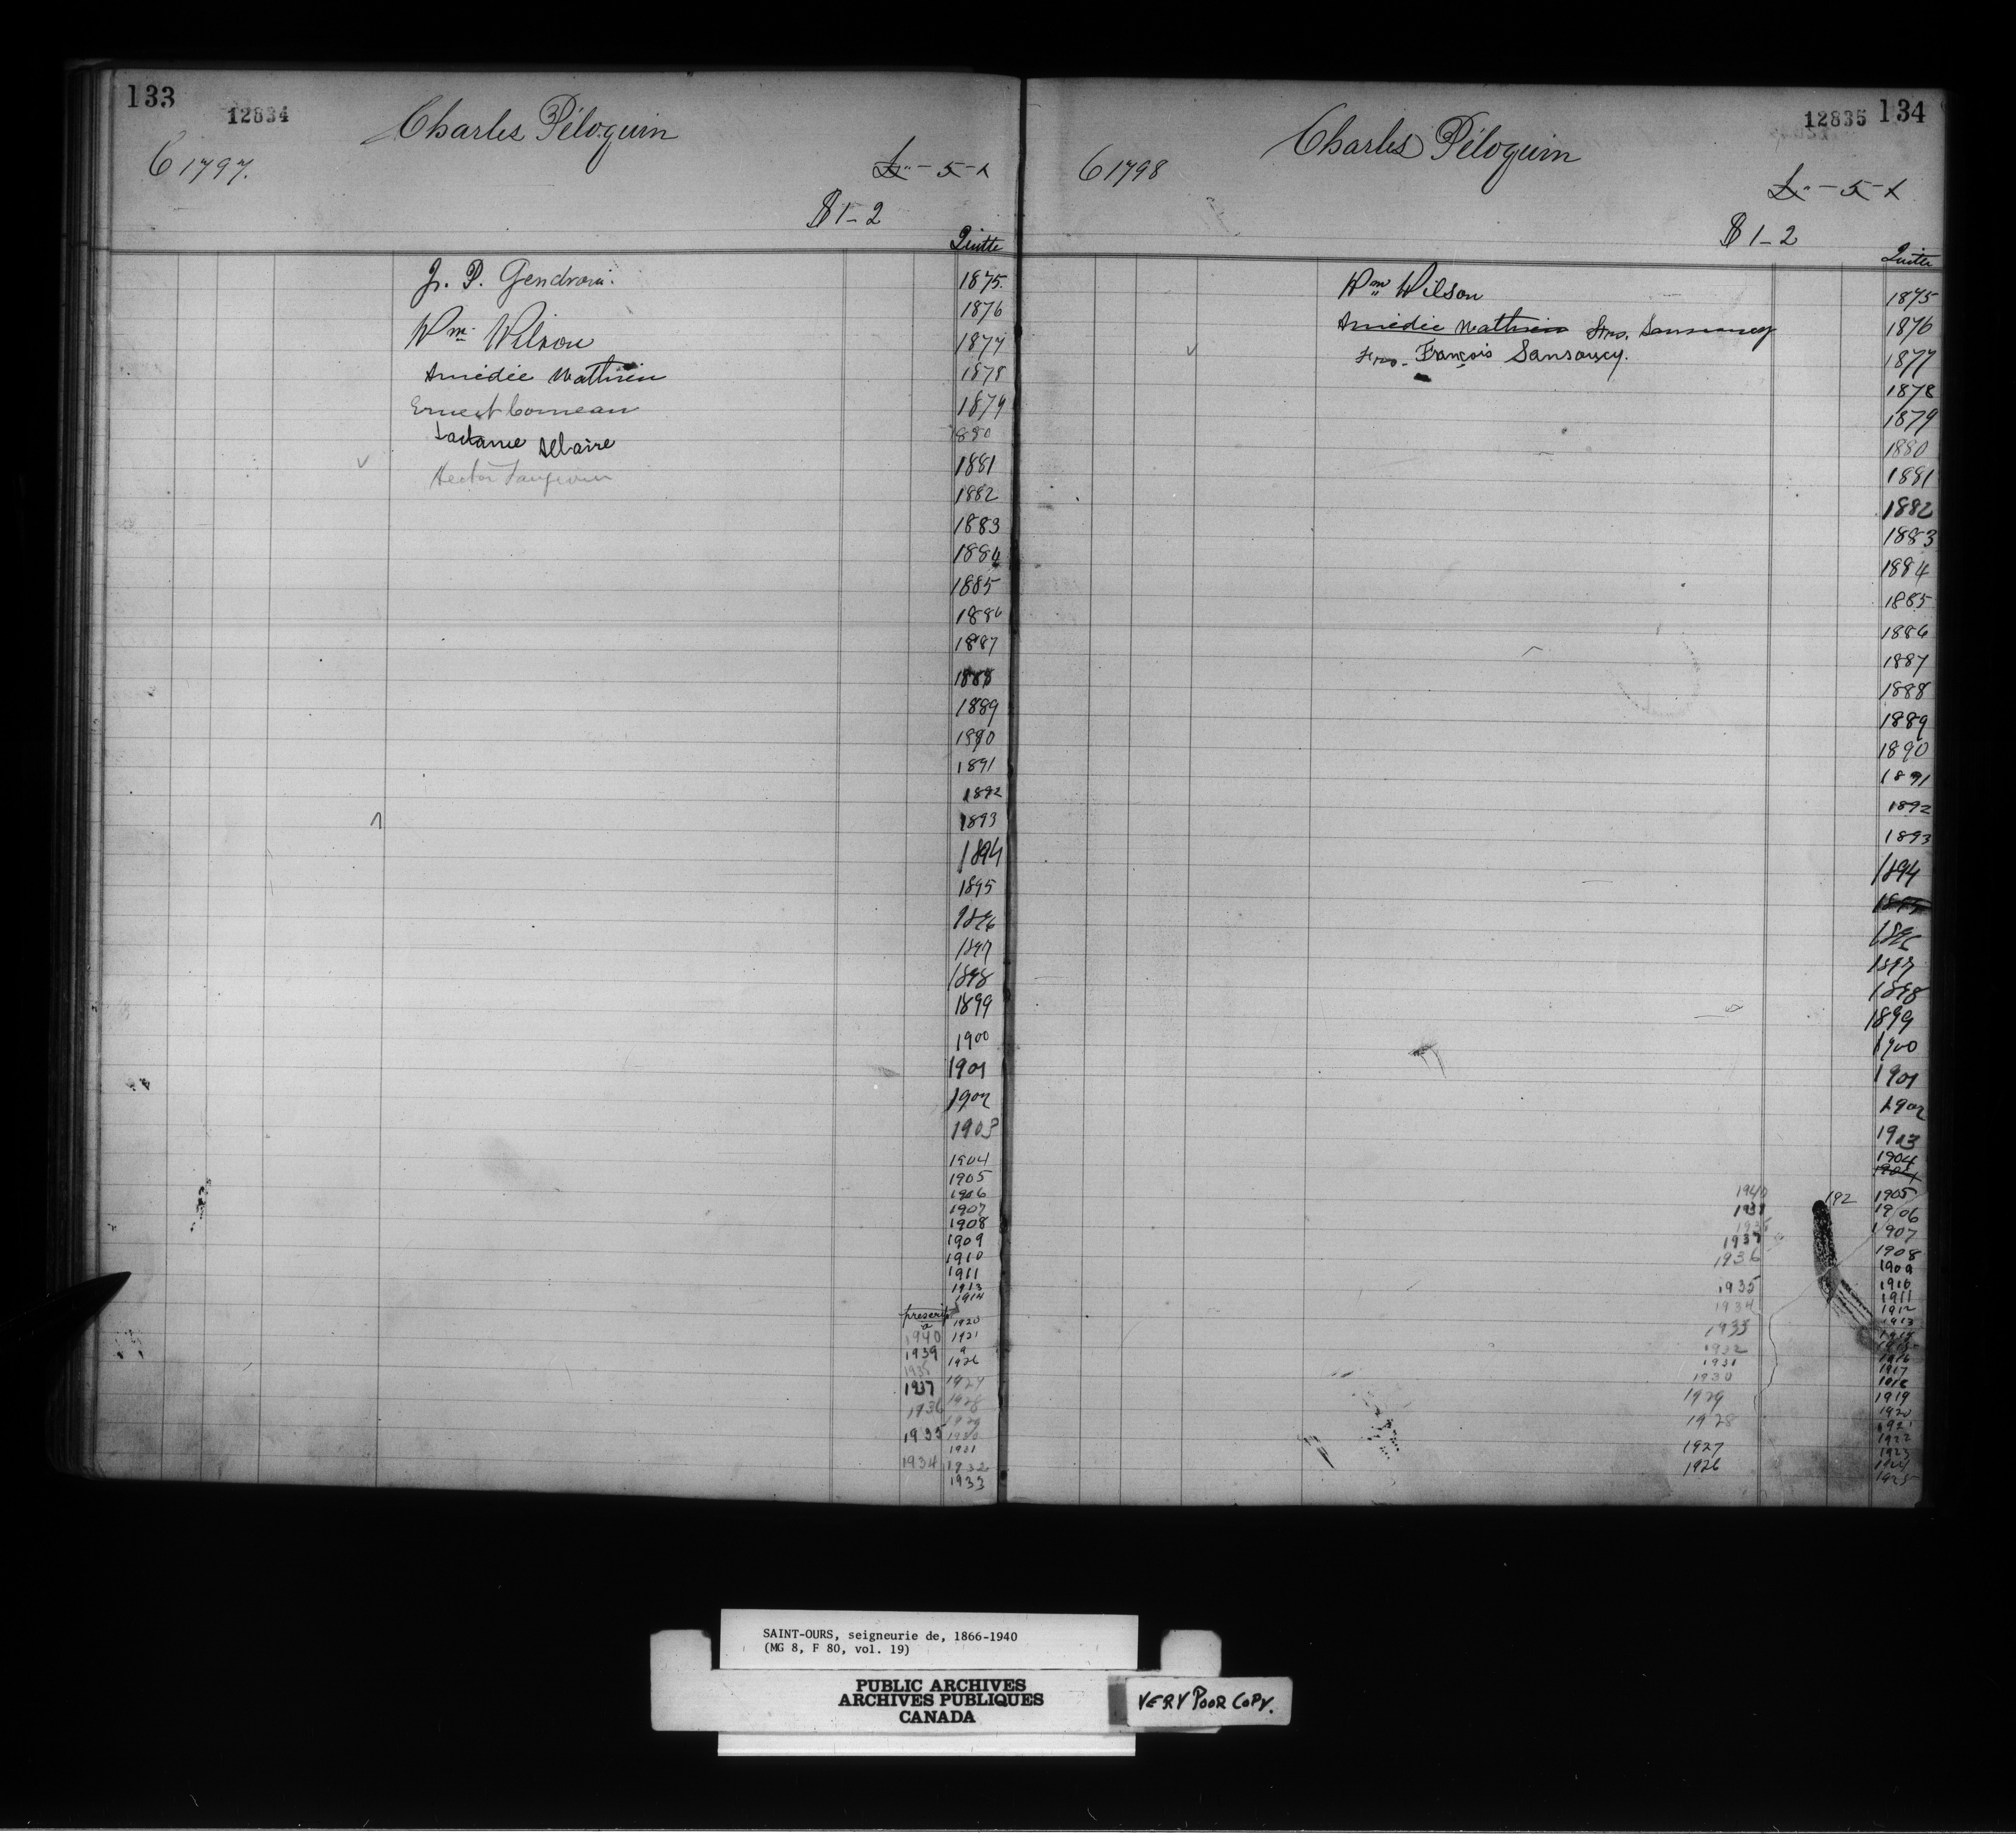 133
12834
Charles Péloquin
6 1797.
£ " - 5 - x
$ 1 - 2
Quitte
J. P. Gendron.
Wm Wilson
Amédée Mathieu
Ernest Comeau
Allaire
Hector
1875.
1876
1877
1878
1879
1880
1881
1882
1883
1884
1885
1886
1887
1888
1889
1890
1891
1892
1893
1894
1895
1896
1897
1898
1899
1900
1901
1902
1903
1904
1905
1906
1907
1908
1909
1910
1911
1913
1914
prescrit
1920
a
1940 1921
1939 a
1926
1937 1927
1936 1928
1929
1935 1930
1931
1934 1932
1933
12835 134
Charles Péloquin
6 1798
£ " - 5 - x
$ 1 - 2
Quitte
Wm Wilson
Amédée Mathieu Frs. Sansoucy
Frs. François Sansoucy.
1875
1876
1877
1878
1879
1880
1881
1882
1883
1884
1885
1886
1887
1888
1889
1890
1891
1892
1893
1894
1895
1896
1897
1898
1899
1900
1901
1902
1903
1904
1904
1940 192 1905
1906
1907
1937 1908
1936 1909
1935 1910
1934 1911
1912
1933 1913
1932
1931 1916
1930 1917
1918
1929 1919
1928 1920
1921
1927 1922
1926 1923
1924
1925
SAINT-OURS, seigneurie de, 1866-1940
(MG 8, F 80, vol. 19)
PUBLIC ARCHIVES
ARCHIVES PUBLIQUES
CANADA
VERY POOR COPY.